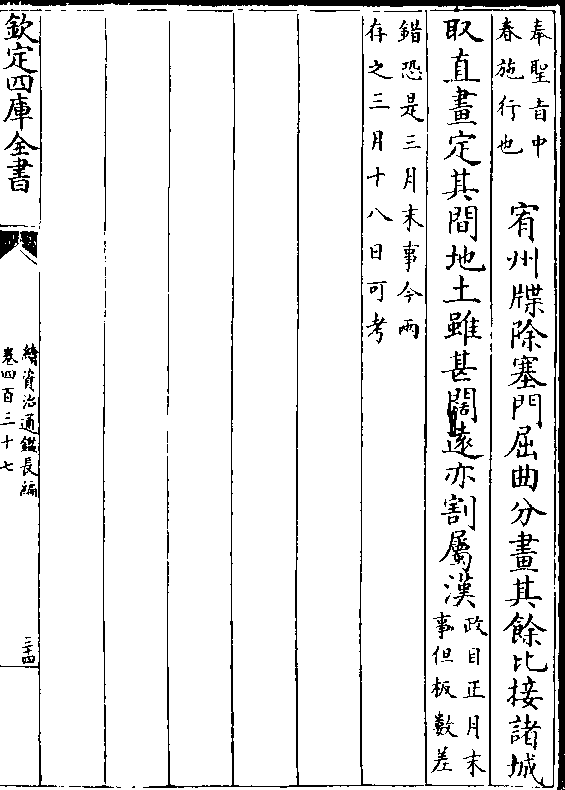 奉聖旨中
春施行也
宥州牒除塞門屈曲分畫其餘比接諸城
取直畫定其間地土雖甚闊逺亦割屬漢
政目正月末
事但板數差
錯恐是三月末事今兩
存之三月十八日可考
欽定四庫全書
續資治通鑑長編
卷四百三十七
三十四